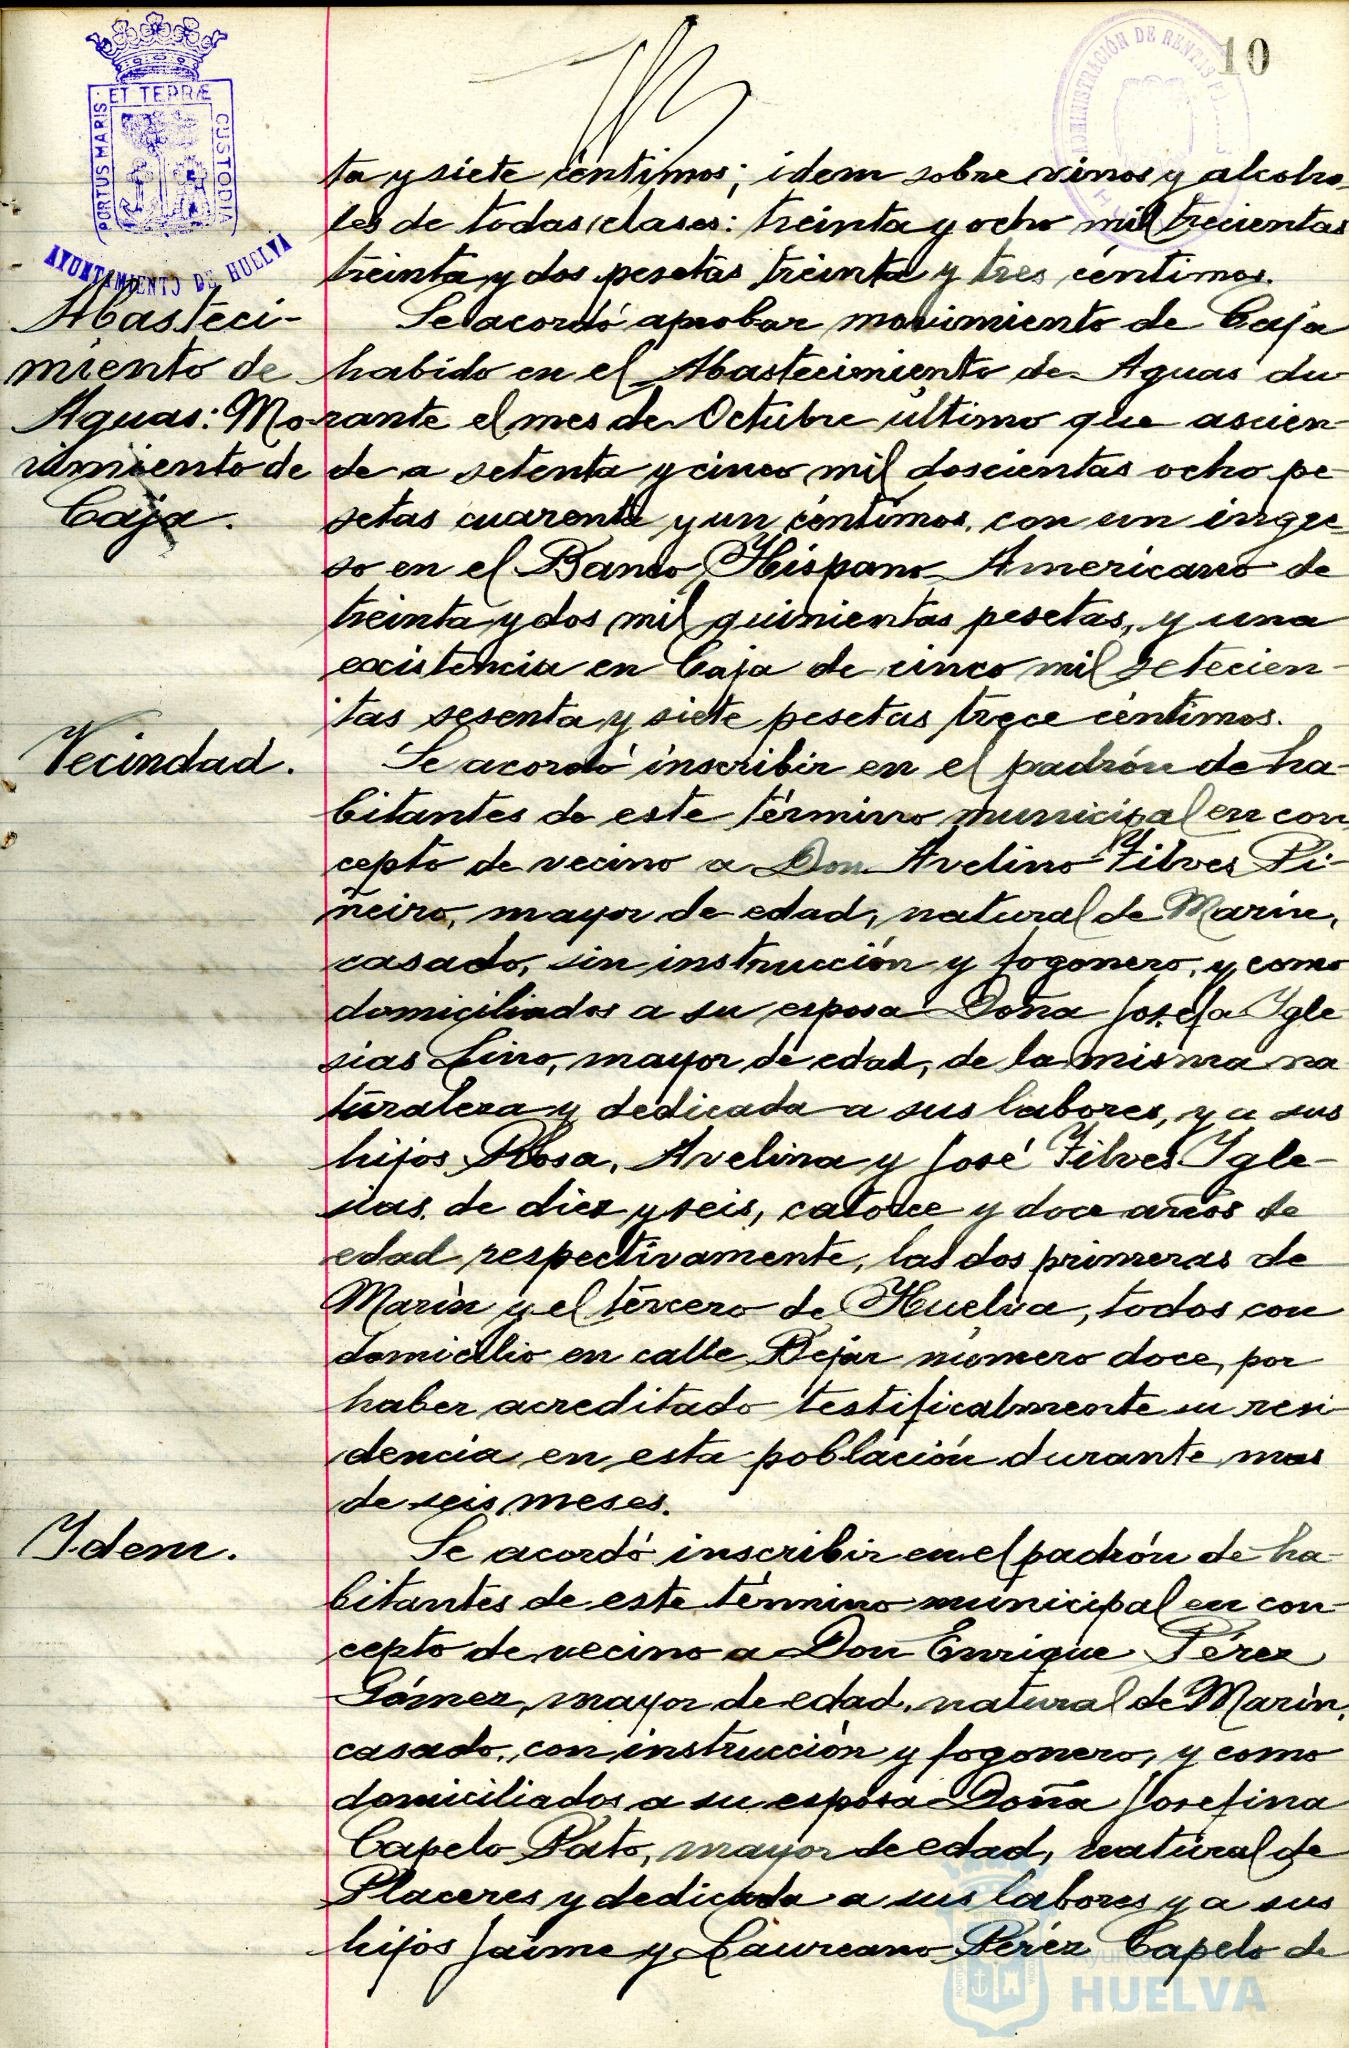 10
ADMINISTRACIÓN DE RENTAS
PORTUS MARIS ET TERRÆ CUSTODIA
AYUNTAMIENTO DE HUELVA
ta y siete céntimos; idem sobre vinos y alcoho-
les de todas clases: treinta y ocho mil trecientas
treinta y dos pesetas treinta y tres céntimos.
Abasteci-
miento de
Aguas: Mo-
vimiento de
Caja.
Se acordó aprobar movimiento de Caja
habido en el Abastecimiento de Aguas du-
rante el mes de Octubre último que ascien-
de a setenta y cinco mil doscientas ocho pe-
setas cuarenta y un céntimos, con un ingre-
so en el Banco Hispano Americano de
treinta y dos mil quinientas pesetas, y una
existencia en Caja de cinco mil setecien-
tas sesenta y siete pesetas trece céntimos.
Vecindad.
Se acordó inscribir en el padrón de ha-
bitantes de este término municipal en con-
cepto de vecino a Don Avelino Filves Pi-
ñeiro, mayor de edad, natural de Marín,
casado, sin instrucción y fogonero, y como
domiciliados a su esposa Doña Josefa Igle
sias Lino, mayor de edad, de la misma na
turaleza y dedicada a sus labores, y a sus
hijos Rosa, Avelina y José Filves Igle-
sias, de diez y seis, catorce y doce años de
edad respectivamente, las dos primeras de
Marín y el tercero de Huelva, todos con
domicilio en calle Bejar número doce, por
haber acreditado testificalmente su resi
dencia en esta población durante mas
de seis meses.
Idem.
Se acordó inscribir en el padrón de ha-
bitantes de este término municipal en con-
cepto de vecino a Don Enrique Pérez
Gómez, mayor de edad, natural de Marín,
casado, con instrucción y fogonero, y como
domiciliados a su esposa Doña Josefina
Capelo Pato, mayor de edad, natural de
Placeres y dedicada a sus labores y a sus
hijos Jaime y Laureano Pérez Capelo de
Ayuntamiento de
HUELVA